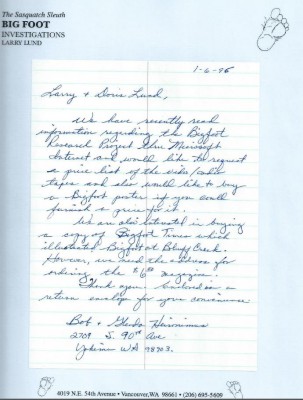 The Sasquatch Sleuth
BIG FOOT
INVESTIGATIONS
LARRY LUND
1-6-96
Larry & Doris Lund,
We have recently read
information regarding the Bigfoot
Research Project thru Microsoft
Internet and would like to request
a price list of the video/audio
tapes and also would like to buy
a Bigfoot poster if you would
furnish a price for it.
We are also interested in buying
a copy of Bigfoot Times which
illustrated Bigfoot at Bluff Creek.
However, we need the address for
ordering the $6.00 magazine.
Thank again enclosed is a
return envelope for your convenience
Bob & Heironimus
2709 S. 90th Ave
Yakima WA 98903.
4019 N.E. 54th Avenue • Vancouver, WA 98661 • (206) 695-5609